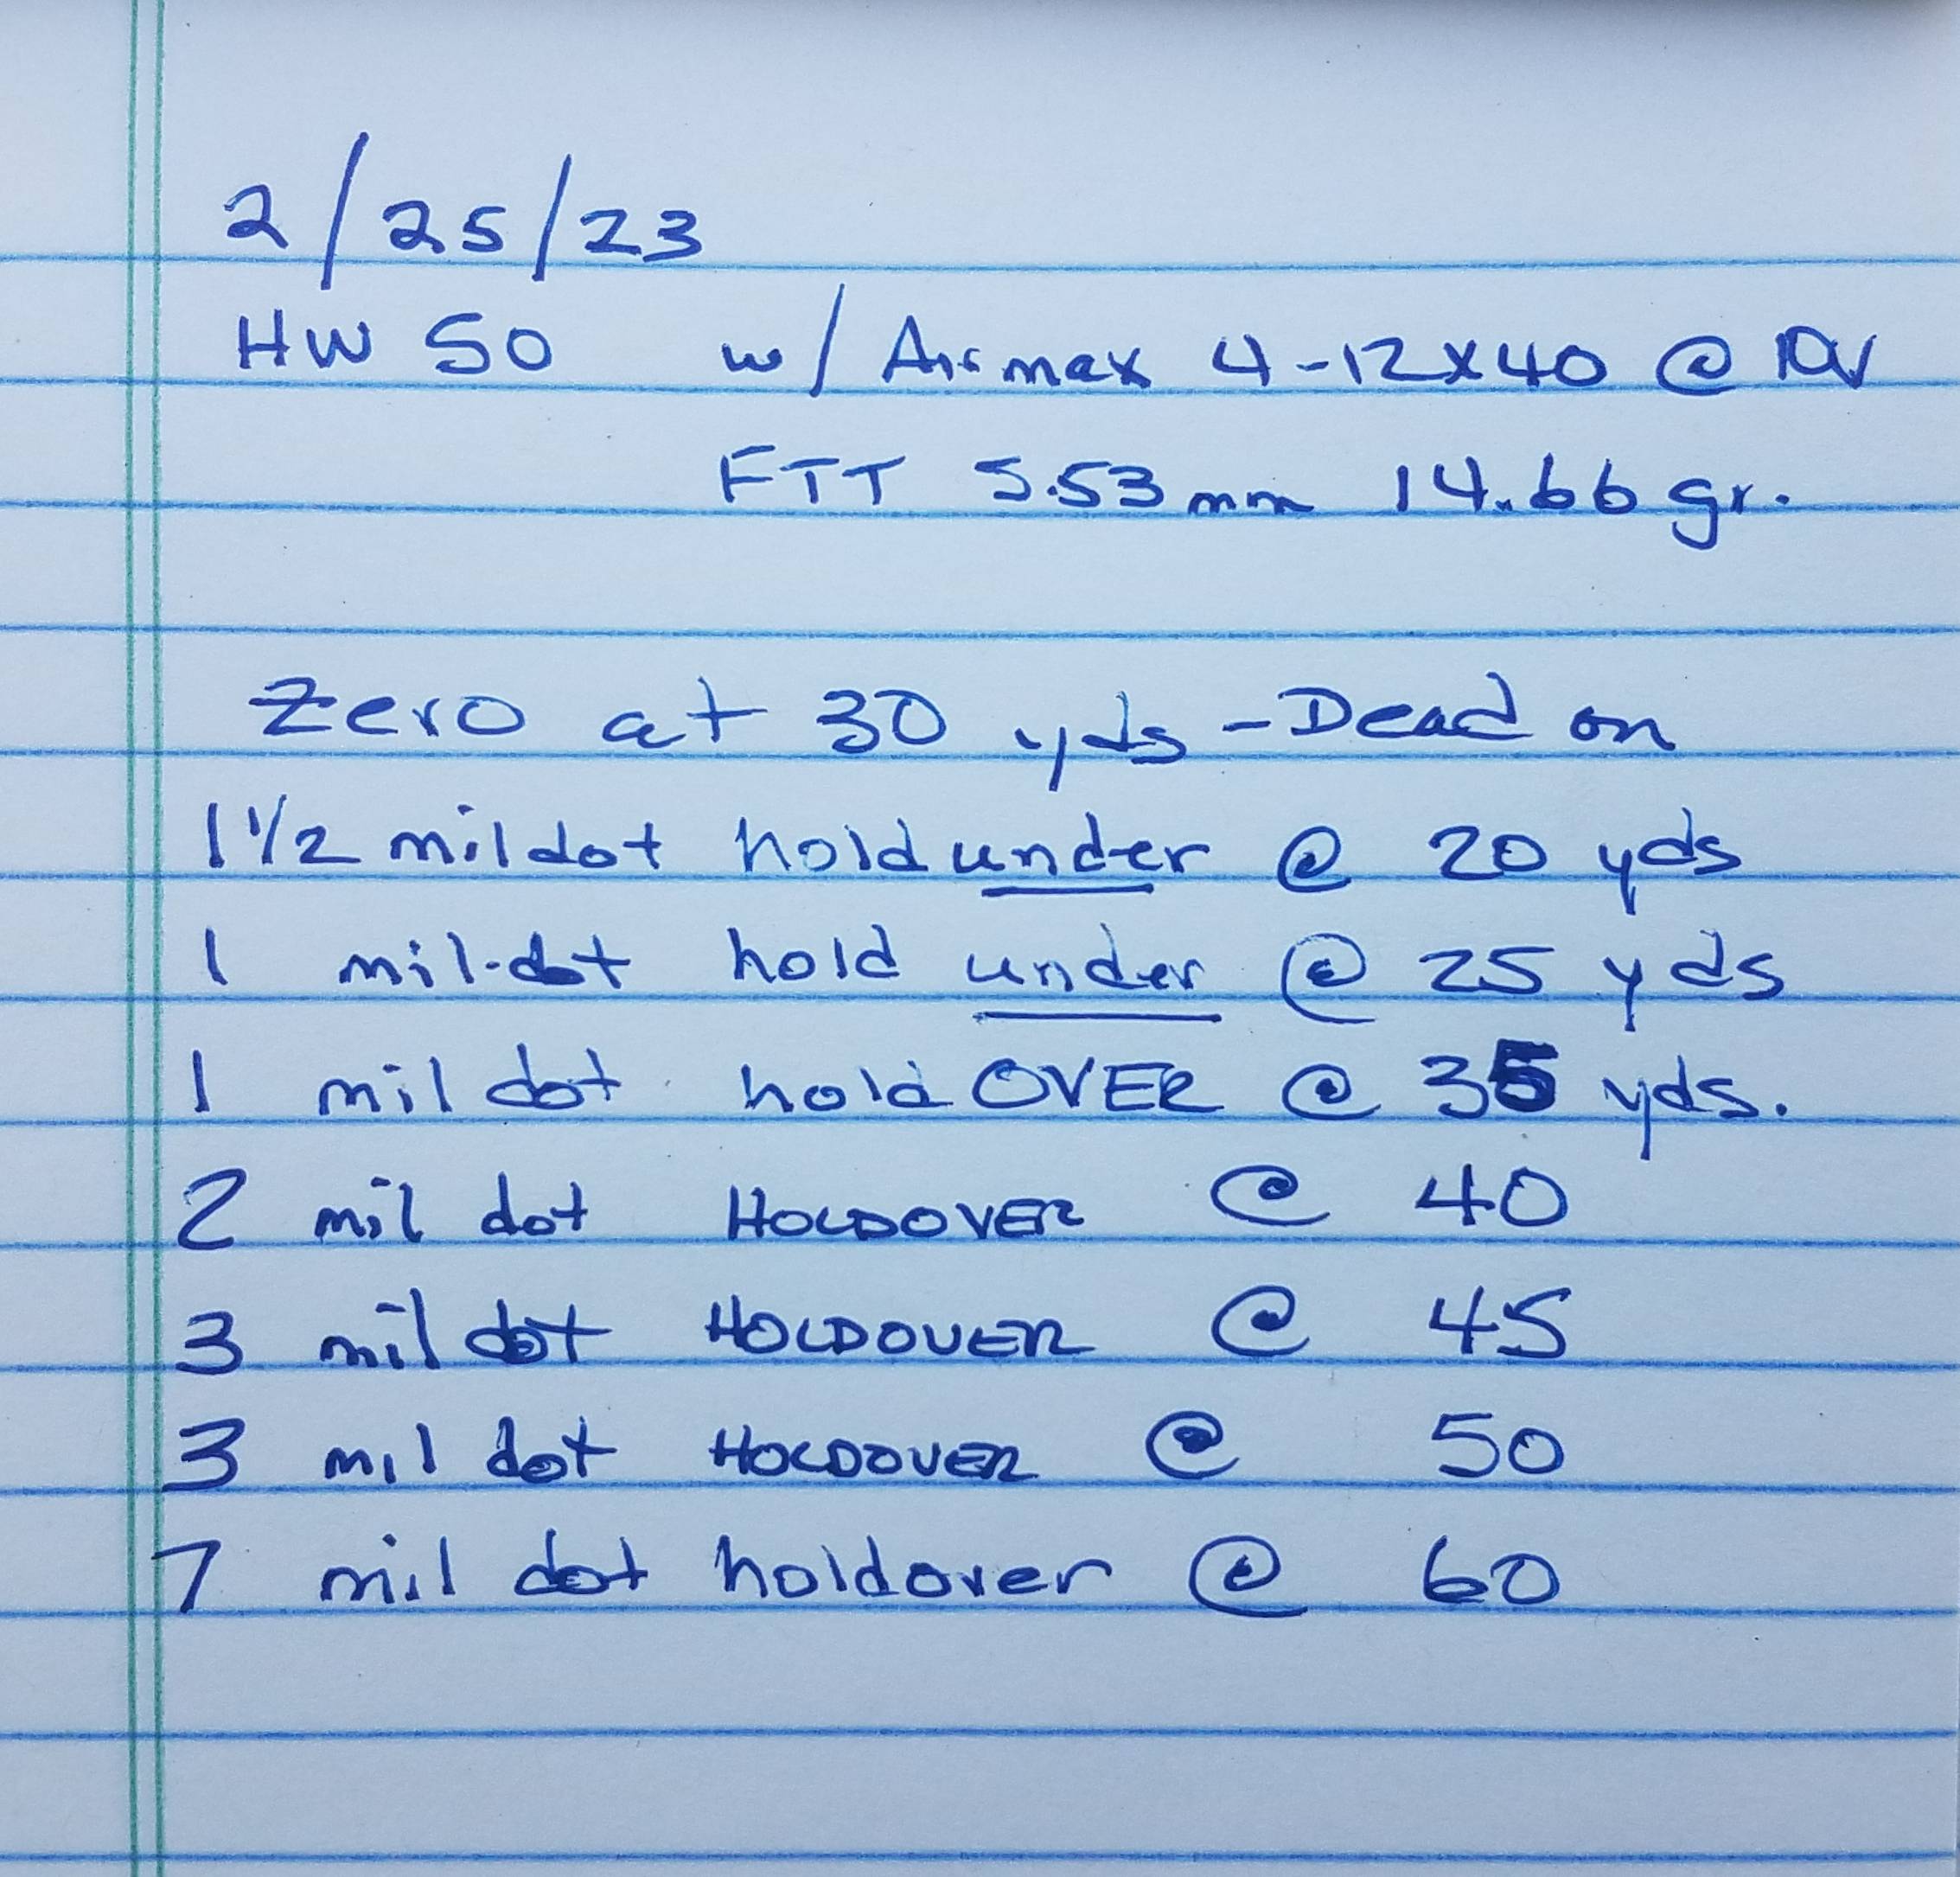 2/25/23
HW 50 w/ Airmax 4-12x40 @ 10x
FTT 5.53mm 14.66 gr.
Zero at 30 yds - Dead on
1 1/2 mildot hold under @ 20 yds
1 mil-dot hold under @ 25 yds
1 mil dot hold OVER @ 35 yds.
2 mil dot HOLDOVER @ 40
3 mil dot HOLDOVER @ 45
3 mil dot HOLDOVER @ 50
7 mil dot holdover @ 60